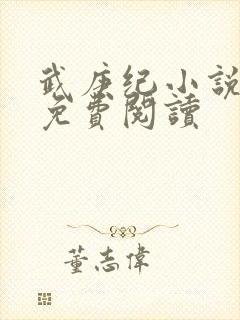 武庚纪小說
免費閱讀
董志偉